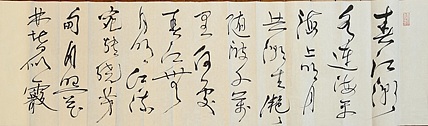 春江潮
水連海平
海上明月
共潮生灩
隨波千萬
里何處
春江無
月明江流
宛轉繞芳
甸月照花
林皆似霰